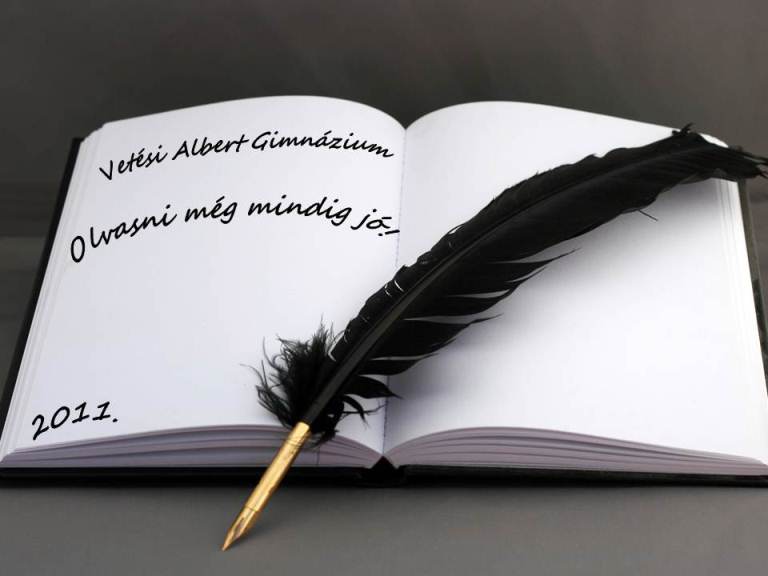 Vetési Albert Gimnázium
Olvasni még mindig jó!
2011.